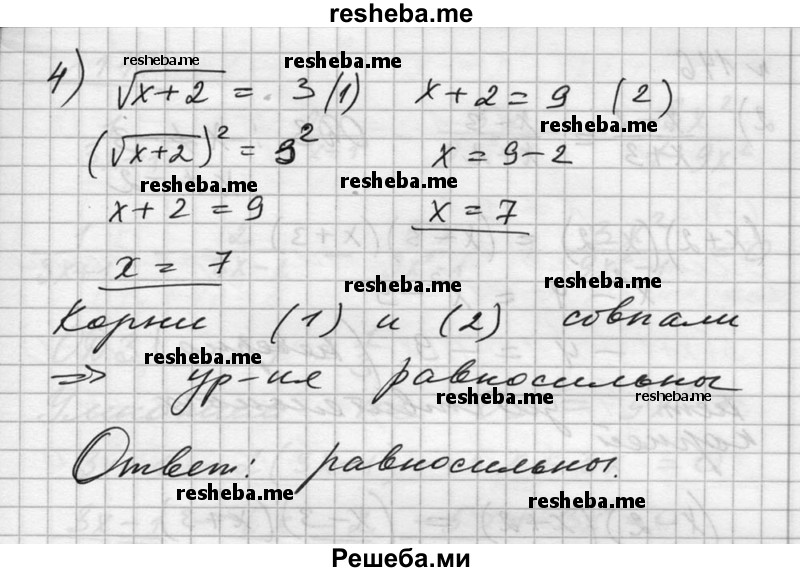 resheba.me
4) √x+2 = 3 (1) x+2=9 (2)
resheba.me resheba.me
(√x+2)² = 3² x=9-2
resheba.me
resheba.me resheba.me
x+2=9 x=7
x = 7
resheba.me resheba.me
Корни (1) и (2) совпали
resheba.me
=> ур-ия равносильны
resheba.me resheba.me
Ответ: равносильны.
resheba.me resheba.me
Решеба.ми